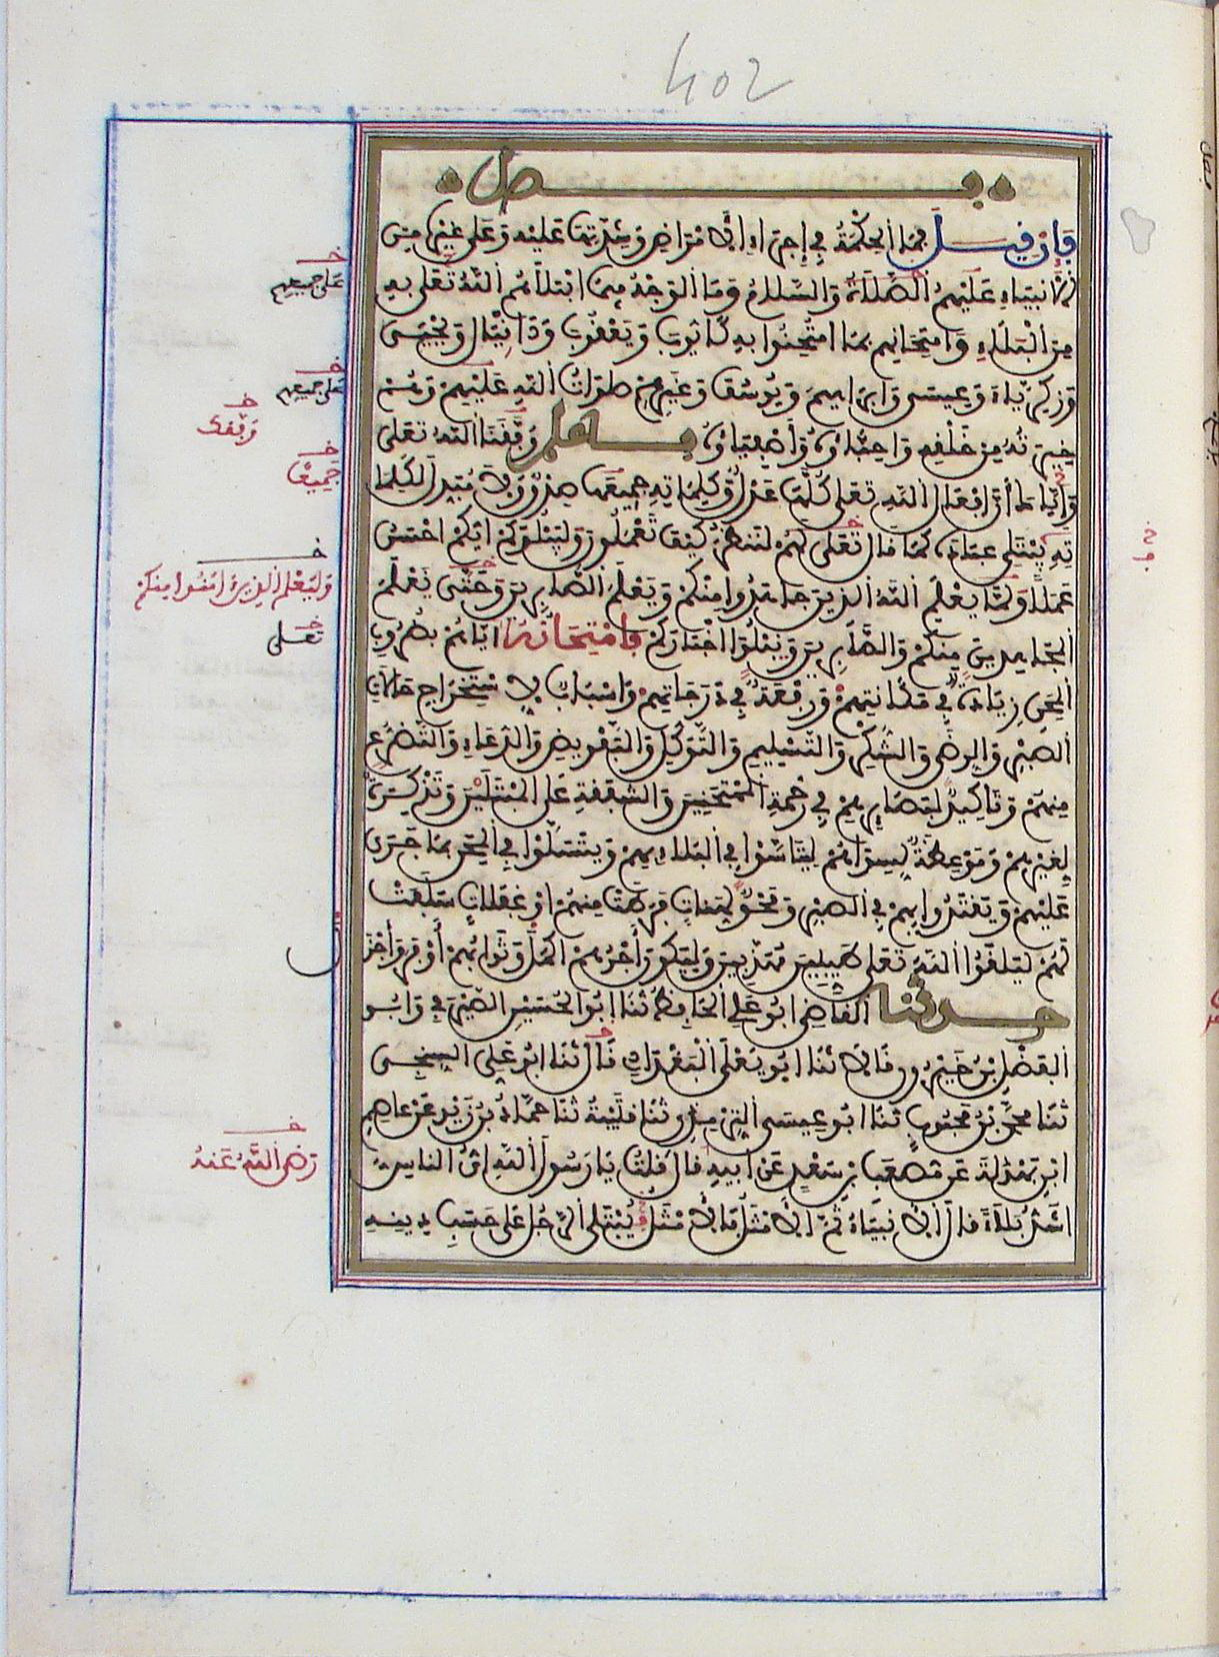 402
فصل
فإن قيل فما الحكمة في إجراء الأمراض وشدتها عليه وعلى غيره من
الأنبياء عليهم الصلاة والسلام وما الوجه فيما ابتلاهم الله تعلى به
من البلاء وامتحانهم بما امتحنوا به كأيوب ويعقوب ودانيال ويحيى
وزكرياء وعيسى وإبراهيم ويوسف وغيرهم صلوات الله عليهم وهم
خيرته من خلقه وأحباؤه وأصفياؤه فاعلم وفقنا الله تعلى
وإياك أن أفعال الله تعلى كلها عدل وكلماته جميعها صدق لا مبدل لكلما
ته يبتلي عباده كما قال تعلى لهم لننظر كيف تعملون وليبلوكم أيكم أحسن
عملا ولما يعلم الله الذين جاهدوا منكم ويعلم الصابرين وحتى نعلم
المجاهدين منكم والصابرين ونبلوا أخباركم فامتحانه إياهم بضروب
المحن زيادة في مكانتهم ورفعة في درجاتهم وأسباب لاستخراج حالات
الصبر والرضى والشكر والتسليم والتوكل والتفويض والدعاء والتضرع
منهم وتأكيد لبصائرهم في رحمة الممتحنين والشفقة على المبتلين وتذكرة
لغيرهم وموعظة لسواهم ليتأسوا في البلاء بهم ويتسلوا في المحن بما جرى
عليهم ويقتدوا بهم في الصبر ومحو لهنات فرطت منهم أو غفلات سلفت
لهم ليلقوا الله تعلى طيبين مهذبين وليكون أجرهم أكمل وثوابهم أوفر وأجزل
حدثنا القاضي أبو علي الحافظ ثنا أبو الحسين الصيرفي وأبو
الفضل بن خيرون قالا ثنا أبو يعلى البغدادي قال ثنا أبو علي السنجي
ثنا محمد بن محبوب ثنا أبو عيسى الترمذي ثنا قتيبة ثنا حماد بن زيد عن عاصم
ابن بهدلة عن مصعب بن سعد عن أبيه قال قلت يا رسول الله أي الناس
أشد بلاء قال الأنبياء ثم الأمثل فالأمثل يبتلى الرجل على حسب دينه
على جميعهم
على جميعهم
وفقك
جميعا
وليعلم الذين ءامنوا منكم
تعلى
رضي الله عنه